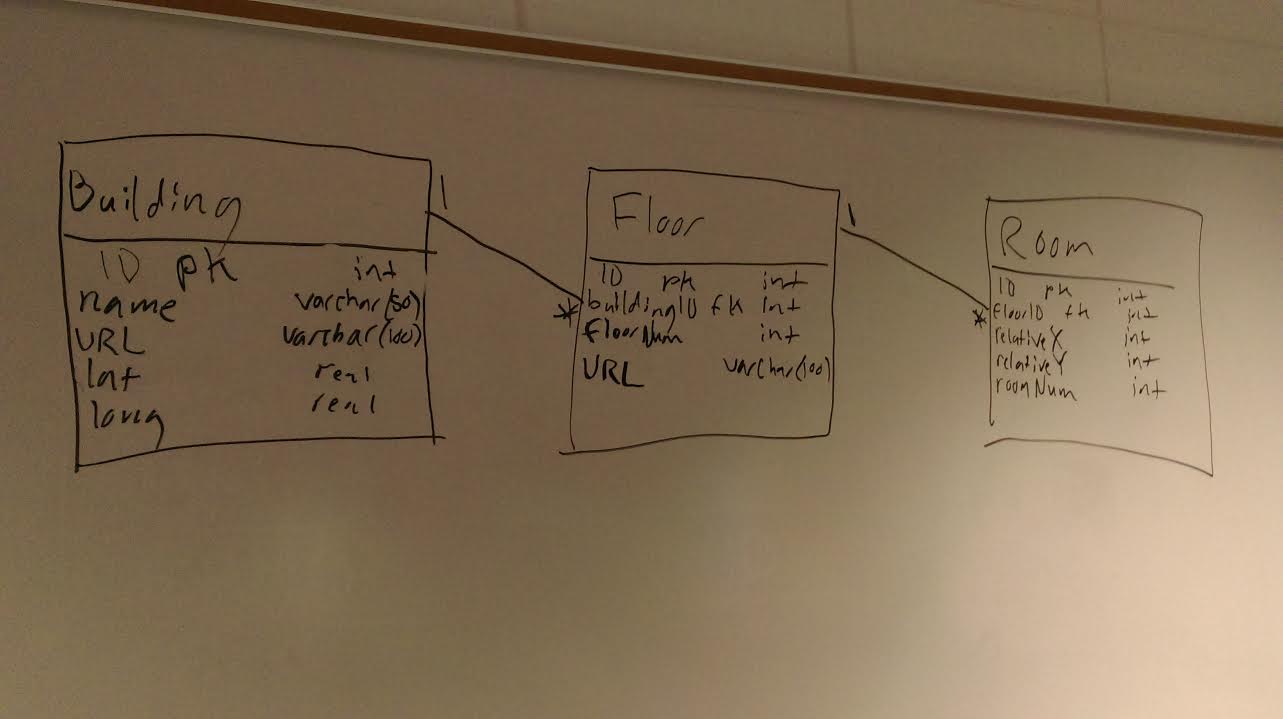 Building
1
ID pk int
name varchar(50)
URL varchar(100)
lat real
long real
Floor
1
ID pk int
* buildingID fk int
floorNum int
URL varchar(100)
Room
ID pk int
* floorID fk int
relativeX int
relativeY int
roomNum int